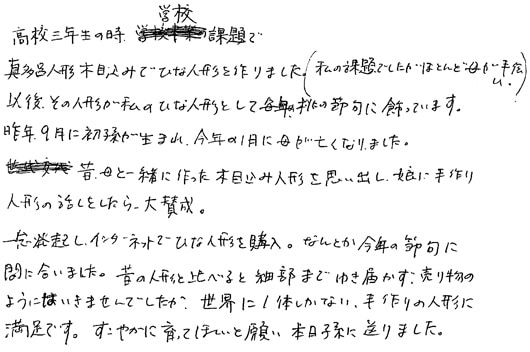 高校三年生の時 学校課題で
真多呂人形木目込みでひな人形を作りました。(私の課題でしたがほとんど母が手伝い。)
以後その人形が私のひな人形として桃の節句に飾っています。
昨年9月に初孫が生まれ、今年の1月に母が亡くなりました。
昔、母と一緒に作った木目込み人形を思い出し、娘に手作り
人形の話しをしたら大賛成。
一念発起し、インターネットでひな人形を購入。なんとか今年の節句に
間に合いました。昔の人形と比べると細部までゆき届かず、売り物の
ようにはいきませんでしたが、世界に1体しかない、手作りの人形に
満足です。すこやかに育ってほしいと願い 本日孫に送りました。